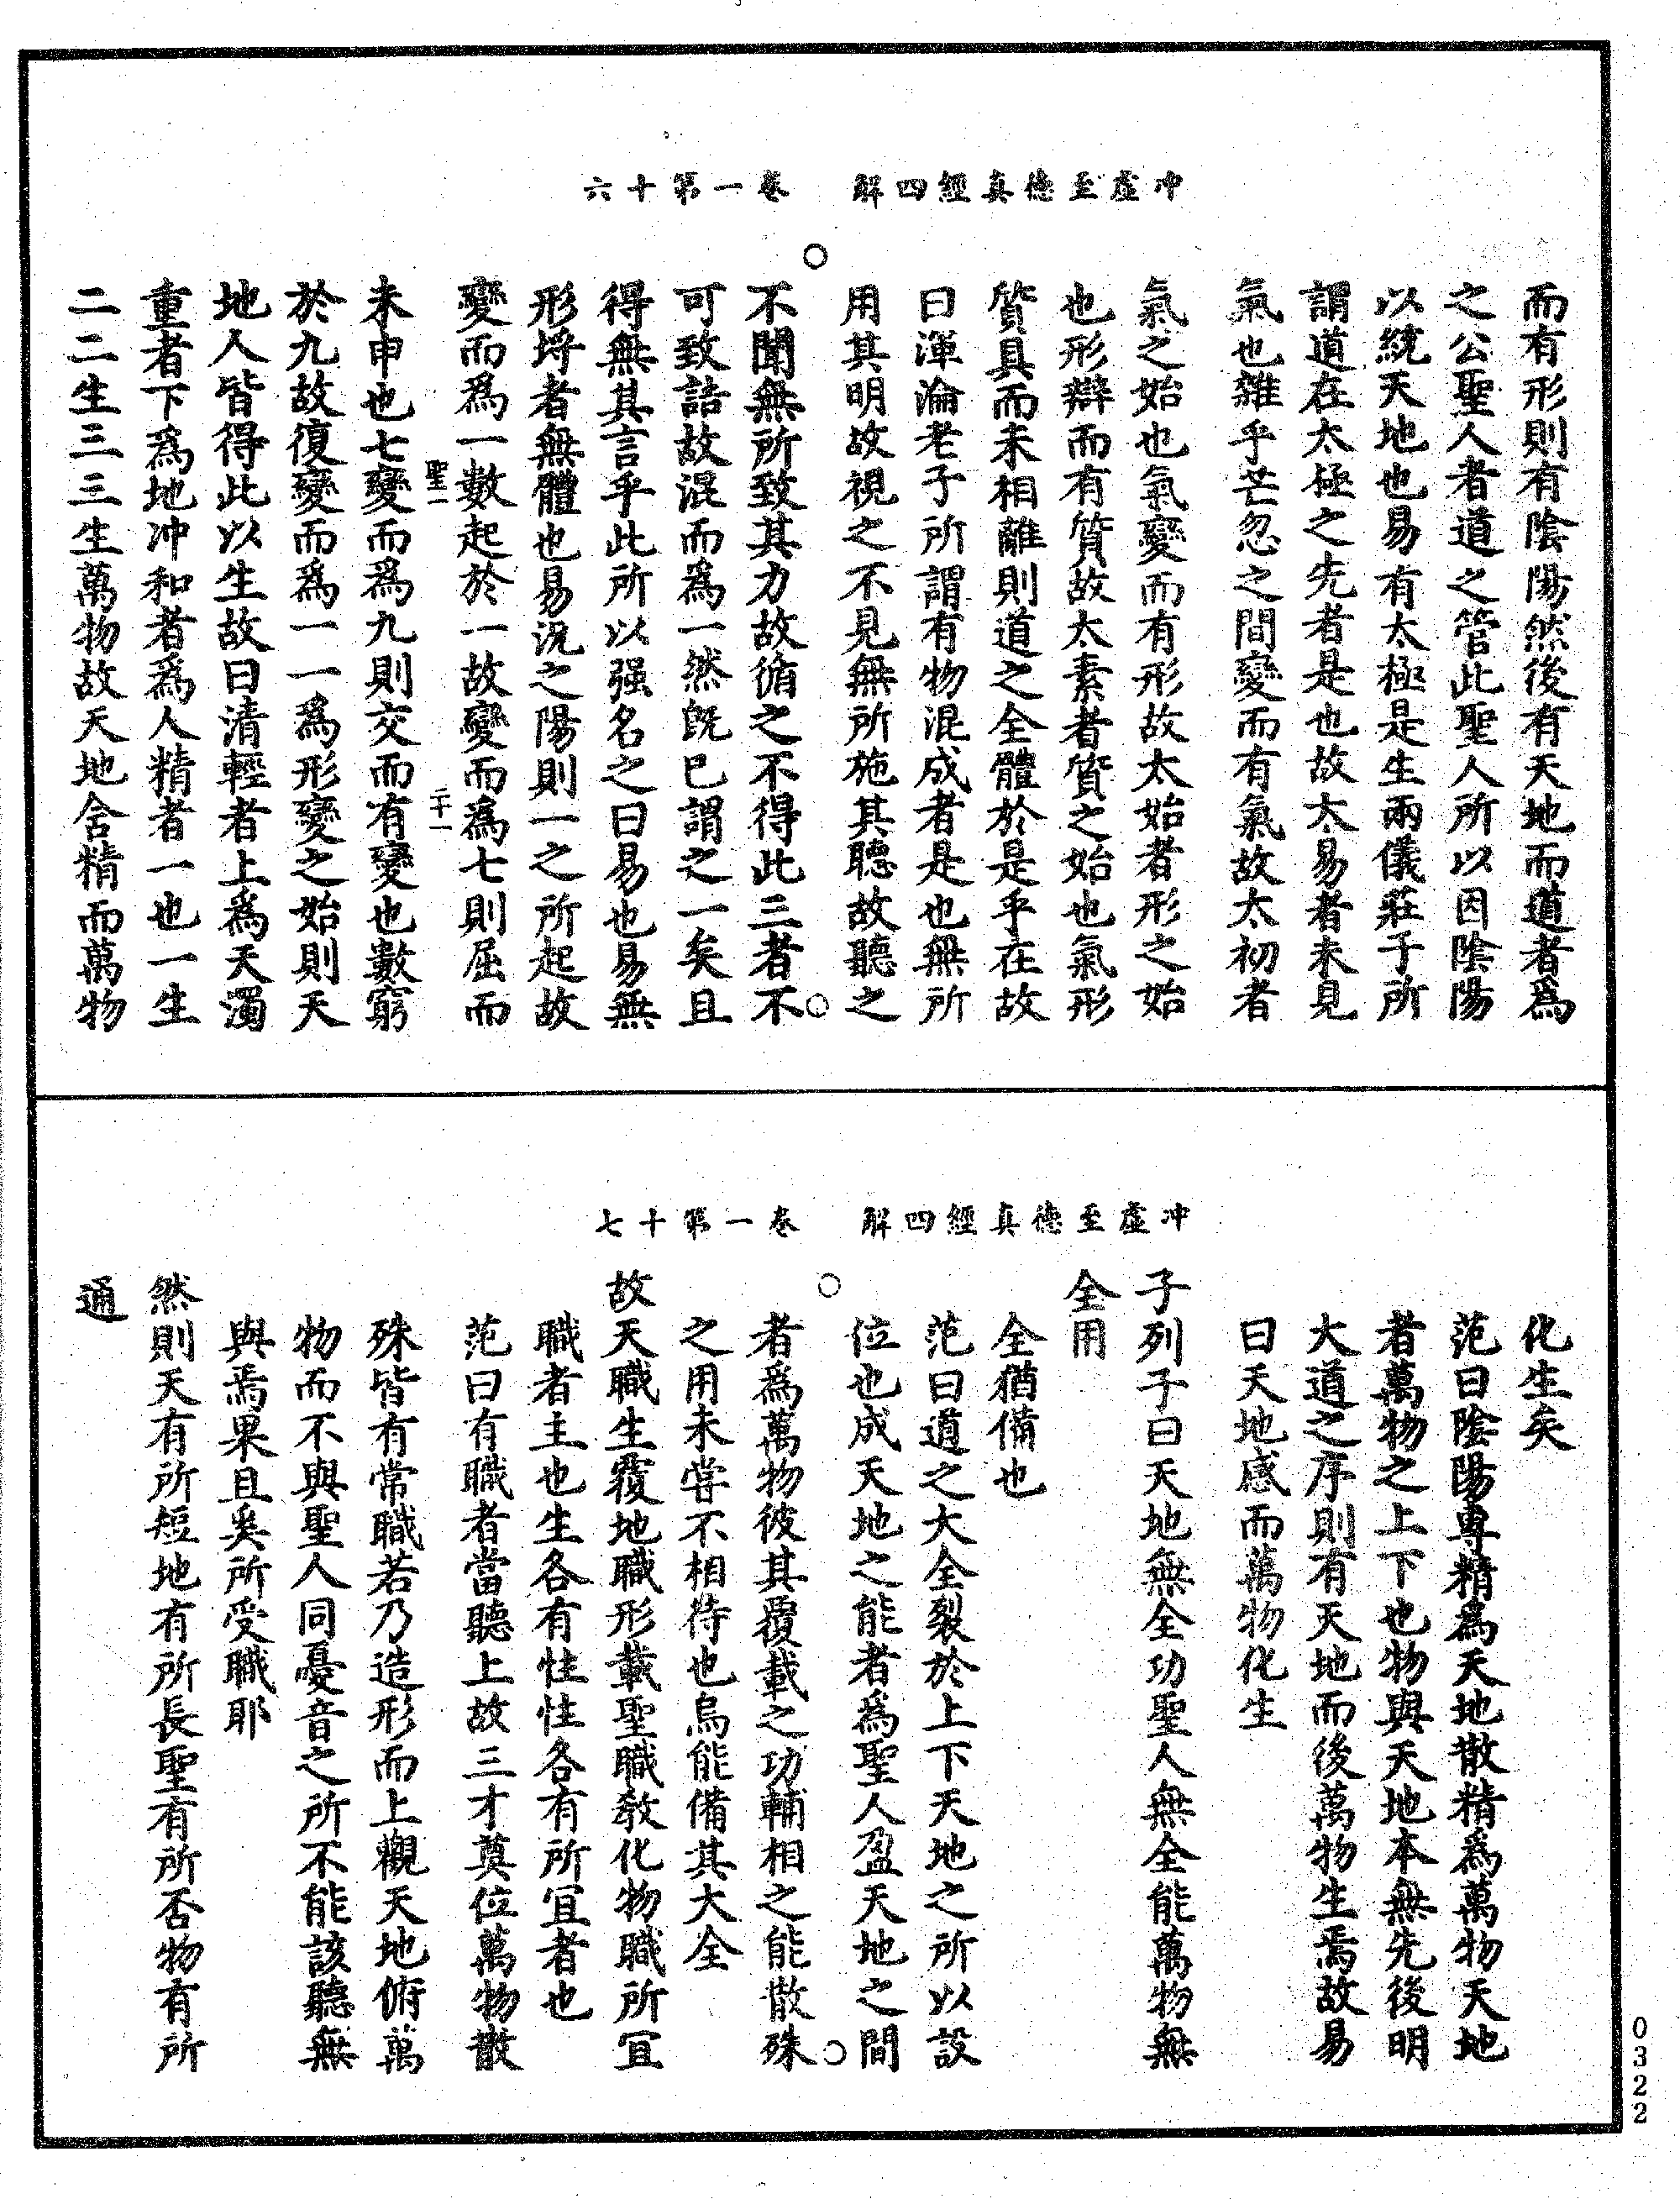 冲虛至德真經四解　卷一第十六
而有形則有陰陽然後有天地而道者爲
之公聖人者道之管此聖人所以因陰陽
以統天地也易有太極是生兩儀莊子所
謂道在太極之先者是也故太易者未見
氣也雜乎芒忽之間變而有氣故太初者
氣之始也氣變而有形故太始者形之始
也形辯而有質故太素者質之始也氣形
質具而未相離則道之全體於是乎在故
曰渾淪老子所謂有物混成者是也無所
用其明故視之不見無所施其聽故聽之
不聞無所致其力故循之不得此三者不
可致詰故混而爲一然旣已謂之一矣且
得無其言乎此所以强名之曰易也易無
形埒者無體也易況之陽則一之所起故
變而爲一數起於一故變而爲七則屈而
聖一　二十一
未申也七變而爲九則交而有變也數窮
於九故復變而爲一一爲形變之始則天
地人皆得此以生故曰清輕者上爲天濁
重者下爲地冲和者爲人精者一也一生
二二生三三生萬物故天地含精而萬物
冲虛至德真經四解　卷一第十七
化生矣
范曰陰陽專精爲天地散精爲萬物天地
者萬物之上下也物與天地本無先後明
大道之序則有天地而後萬物生焉故易
曰天地感而萬物化生
子列子曰天地無全功聖人無全能萬物無
全用
全猶備也
范曰道之大全裂於上下天地之所以設
位也成天地之能者爲聖人盈天地之間
者爲萬物彼其覆載之功輔相之能散殊
之用未嘗不相待也烏能備其大全
故天職生覆地職形載聖職教化物職所宜
職者主也生各有性性各有所宜者也
范曰有職者當聽上故三才奠位萬物散
殊皆有常職若乃造形而上觀天地俯萬
物而不與聖人同憂音之所不能該聽無
與焉果且奚所受職耶
然則天有所短地有所長聖有所否物有所
通
0322